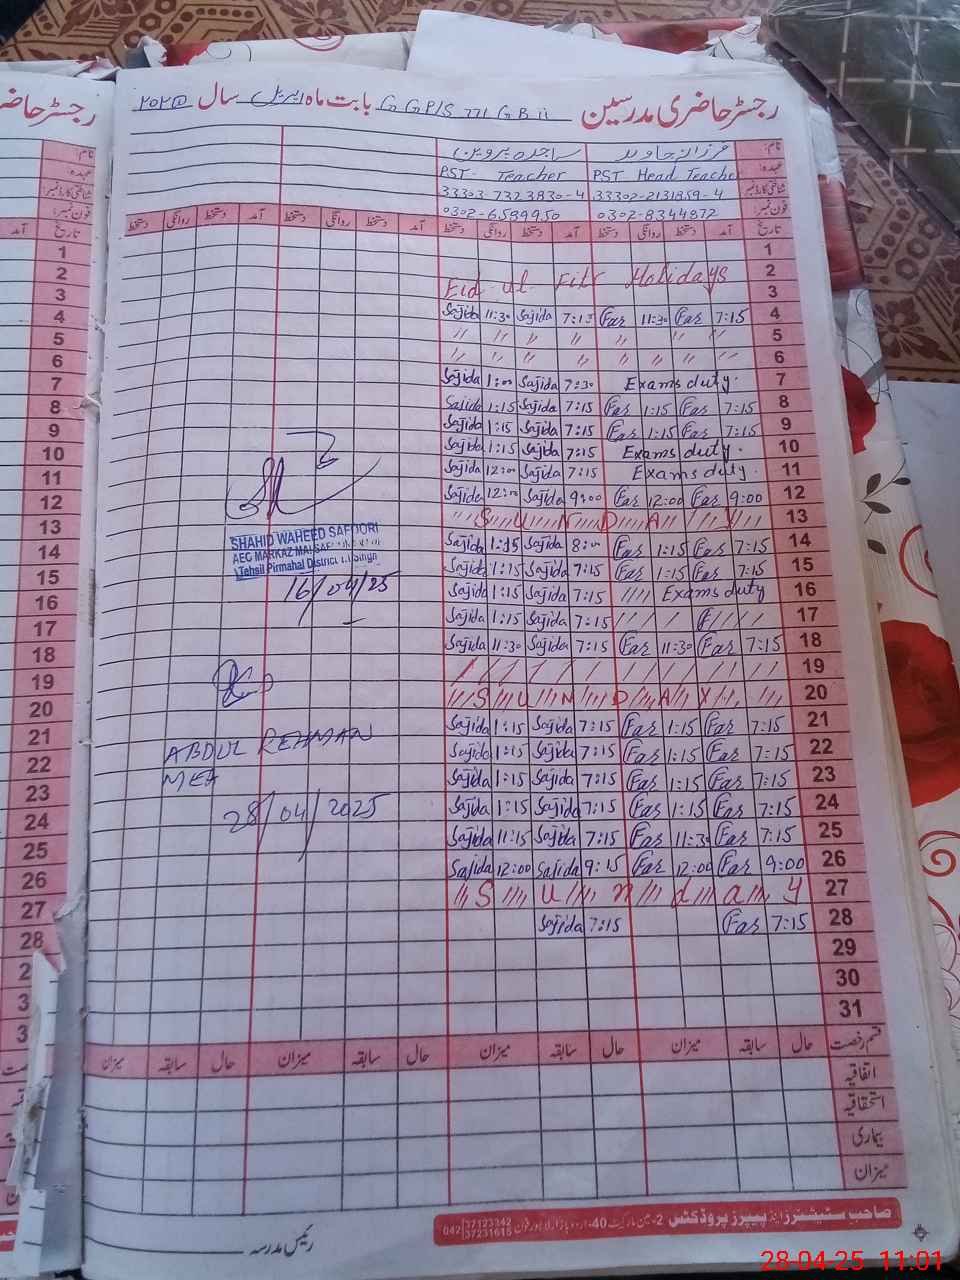 رجسٹر حاضری مدرسین G GP/S 771 GB ii بابت ماہ اپریل سال ۲۰۲۵
نام: فرزانہ جاوید ساجدہ پروین
عہدہ: PST Head Teacher PST- Teacher
شناختی کارڈ نمبر: 33302-2131859-4 33303-7323830-4
فون نمبر: 0302-8344872 0302-6599950
تاریخ آمد دستخط روانگی دستخط آمد دستخط روانگی دستخط آمد دستخط روانگی دستخط آمد دستخط
1
2 Eid ul Fitr Holidays
3
4 7:15 Far 11:30 Far 7:15 Sajida 11:30 Sajida
5 〃 〃 〃 〃 〃 〃 〃
6 〃 〃 〃 〃 〃 〃 〃 〃
7 Exams duty. 7:30 Sajida 1:00 Sajida
8 7:15 Far 1:15 Far 7:15 Sajida 1:15 Sajida
9 7:15 Far 1:15 Far 7:15 Sajida 1:15 Sajida
10 Exams duty. 7:15 Sajida 1:15 Sajida
11 Exams duty. 7:15 Sajida 12:00 Sajida
12 9:00 Far 12:00 Far 9:00 Sajida 12:00 Sajida
13 SUNDAY
14 7:15 Far 1:15 Far 8:00 Sajida 1:15 Sajida
15 7:15 Far 1:15 Far 7:15 Sajida 1:15 Sajida
16 Exams duty 7:15 Sajida 1:15 Sajida
17 7:15 Sajida 1:15 Sajida
18 7:15 Far 11:30 Far 7:15 Sajida 11:30 Sajida
19
20 SUNDAY
21 7:15 Far 1:15 Far 7:15 Sajida 1:15 Sajida
22 7:15 Far 1:15 Far 7:15 Sajida 1:15 Sajida
23 7:15 Far 1:15 Far 7:15 Sajida 1:15 Sajida
24 7:15 Far 1:15 Far 7:15 Sajida 1:15 Sajida
25 7:15 Far 11:30 Far 7:15 Sajida 11:15 Sajida
26 9:00 Far 12:00 Far 9:15 Sajida 12:00 Sajida
27 Sunday
28 7:15 Far 7:15 Sajida
29
30
31
SHAHID WAHEED SAFOORI
AEC MARKAZ
Tehsil Pirmahal District
16/04/25
ABDUL REHMAN
MEA
28/04/2025
قسم رخصت حال سابقہ میزان حال سابقہ میزان حال سابقہ میزان حال سابقہ میزان
اتفاقیہ
استحقاقیہ
بیماری
میزان
صاحب سٹیشنرز اینڈ پیپرز پروڈکٹس 2- مین مارکیٹ 40- اردو بازار لاہور فون 042 37123342 37231615
رئیس مدرسہ
رجسٹر حاضر
آمد
1
2
3
4
5
6
7
8
9
10
11
12
13
14
15
16
17
18
19
20
21
22
23
24
25
26
27
28
28-04-25 11:01